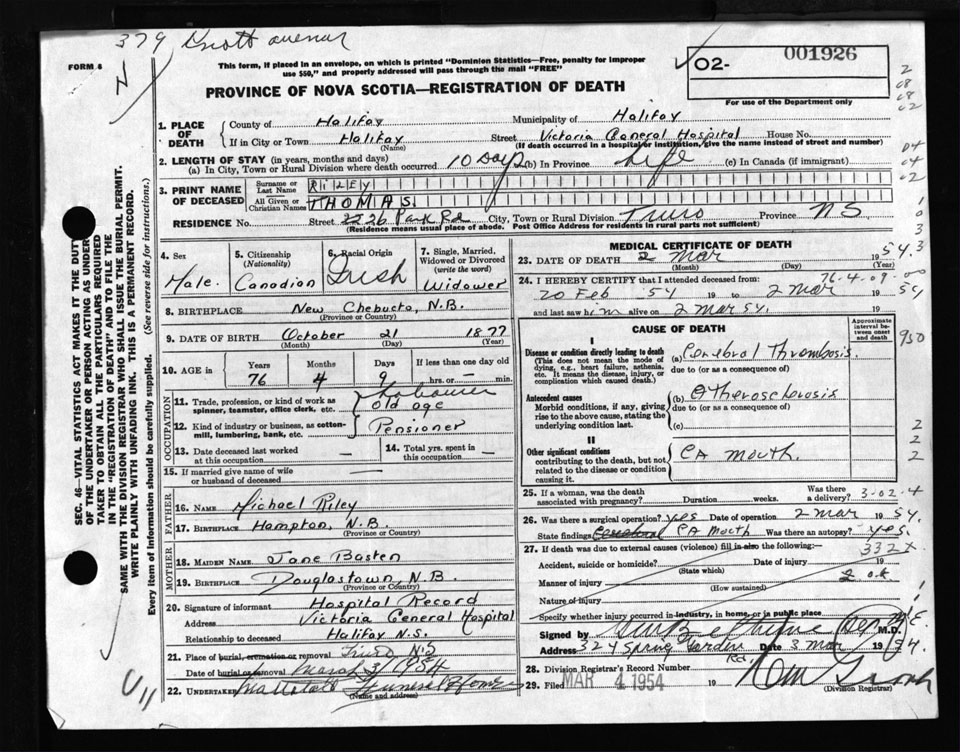 379 avenue
FORM 6
This form, if placed in an envelope, on which is printed "Dominion Statistics—Free, penalty for improper
use $50," and properly addressed will pass through the mail "FREE"
02- 001926
For use of the Department only
PROVINCE OF NOVA SCOTIA—REGISTRATION OF DEATH
1. PLACE OF DEATH
County of Halifax Municipality of Halifax
If in City or Town Halifax (Name) Street Victoria General Hospital House No.
(If death occurred in a hospital or institution, give the name instead of street and number)
2. LENGTH OF STAY (in years, months and days)
(a) In City, Town or Rural Division where death occurred 10 Days (b) In Province Life (c) In Canada (if immigrant)
3. PRINT NAME OF DECEASED
Surname or Last Name RILEY
All Given or Christian Names THOMAS.
RESIDENCE No. Street 2226 Park Rd City, Town or Rural Division Truro Province NS
(Residence means usual place of abode. Post Office Address for residents in rural parts not sufficient)
4. Sex Male.
5. Citizenship (Nationality) Canadian
6. Racial Origin Irish
7. Single, Married, Widowed or Divorced (write the word) Widower
8. BIRTHPLACE New Chebucto, N.B.
(Province or Country)
9. DATE OF BIRTH October 21 1877
(Month) (Day) (Year)
10. AGE in Years 76 Months 4 Days 9 If less than one day old — hrs. or — min.
OCCUPATION
11. Trade, profession or kind of work as spinner, teamster, office clerk, etc. Labourer old age
12. Kind of industry or business, as cotton-mill, lumbering, bank, etc. Pensioner
13. Date deceased last worked at this occupation —
14. Total yrs. spent in this occupation —
15. If married give name of wife or husband of deceased —
FATHER
16. Name Michael Riley
17. Birthplace Hampton, N.B.
(Province or Country)
MOTHER
18. MAIDEN NAME Jane Basten
19. BIRTHPLACE Douglastown, N.B.
(Province or Country)
20. Signature of informant Hospital Record
Address Victoria General Hospital
Relationship to deceased Halifax N.S.
21. Place of burial, cremation or removal Truro N.S
Date of burial or removal March 3/1954
22. Undertaker Funeral Home
(Name and address)
MEDICAL CERTIFICATE OF DEATH
23. DATE OF DEATH 2 Mar 1954
(Month) (Day) (Year)
24. I HEREBY CERTIFY that I attended deceased from: 76-4-09
20 Feb 54 19 to 2 Mar 1954
and last saw him alive on 2 Mar 54. 19
CAUSE OF DEATH
Approximate interval between onset and death
I
Disease or condition directly leading to death
(This does not mean the mode of dying, e.g., heart failure, asthenia, etc. It means the disease, injury, or complication which caused death.
(a) Cerebral Thrombosis.
due to (or as a consequence of)
Antecedent causes
Morbid conditions, if any, giving rise to the above cause, stating the underlying condition last.
(b) Atherosclerosis
due to (or as a consequence of)
(c)
II
Other significant conditions
contributing to the death, but not related to the disease or condition causing it.
CA mouth.
930
25. If a woman, was the death associated with pregnancy? Duration weeks. Was there a delivery? 3-02-4
26. Was there a surgical operation? yes Date of operation 2 mar 1954.
State findings Cerebral CA mouth Was there an autopsy? yes.
27. If death was due to external causes (violence) fill in also the following:— 332X
Accident, suicide or homicide? Date of injury 19
(State which)
Manner of injury
(How sustained)
Nature of injury
Specify whether injury occurred in industry, in home, or in public place
Signed by M.D.
Address 324 Spring Garden Rd. Date 3 mar 1954.
28. Division Registrar's Record Number
29. Filed MAR 4 1954 19
(Division Registrar)
SEC. 46—VITAL STATISTICS ACT MAKES IT THE DUTY
OF THE UNDERTAKER OR PERSON ACTING AS UNDER-
TAKER TO OBTAIN ALL THE PARTICULARS REQUIRED
IN THE "REGISTRATION OF DEATH" AND TO FILE THE
SAME WITH THE DIVISION REGISTRAR WHO SHALL ISSUE THE BURIAL PERMIT.
WRITE PLAINLY WITH UNFADING INK. THIS IS A PERMANENT RECORD.
Every item of information should be carefully supplied. (See reverse side for instructions.)